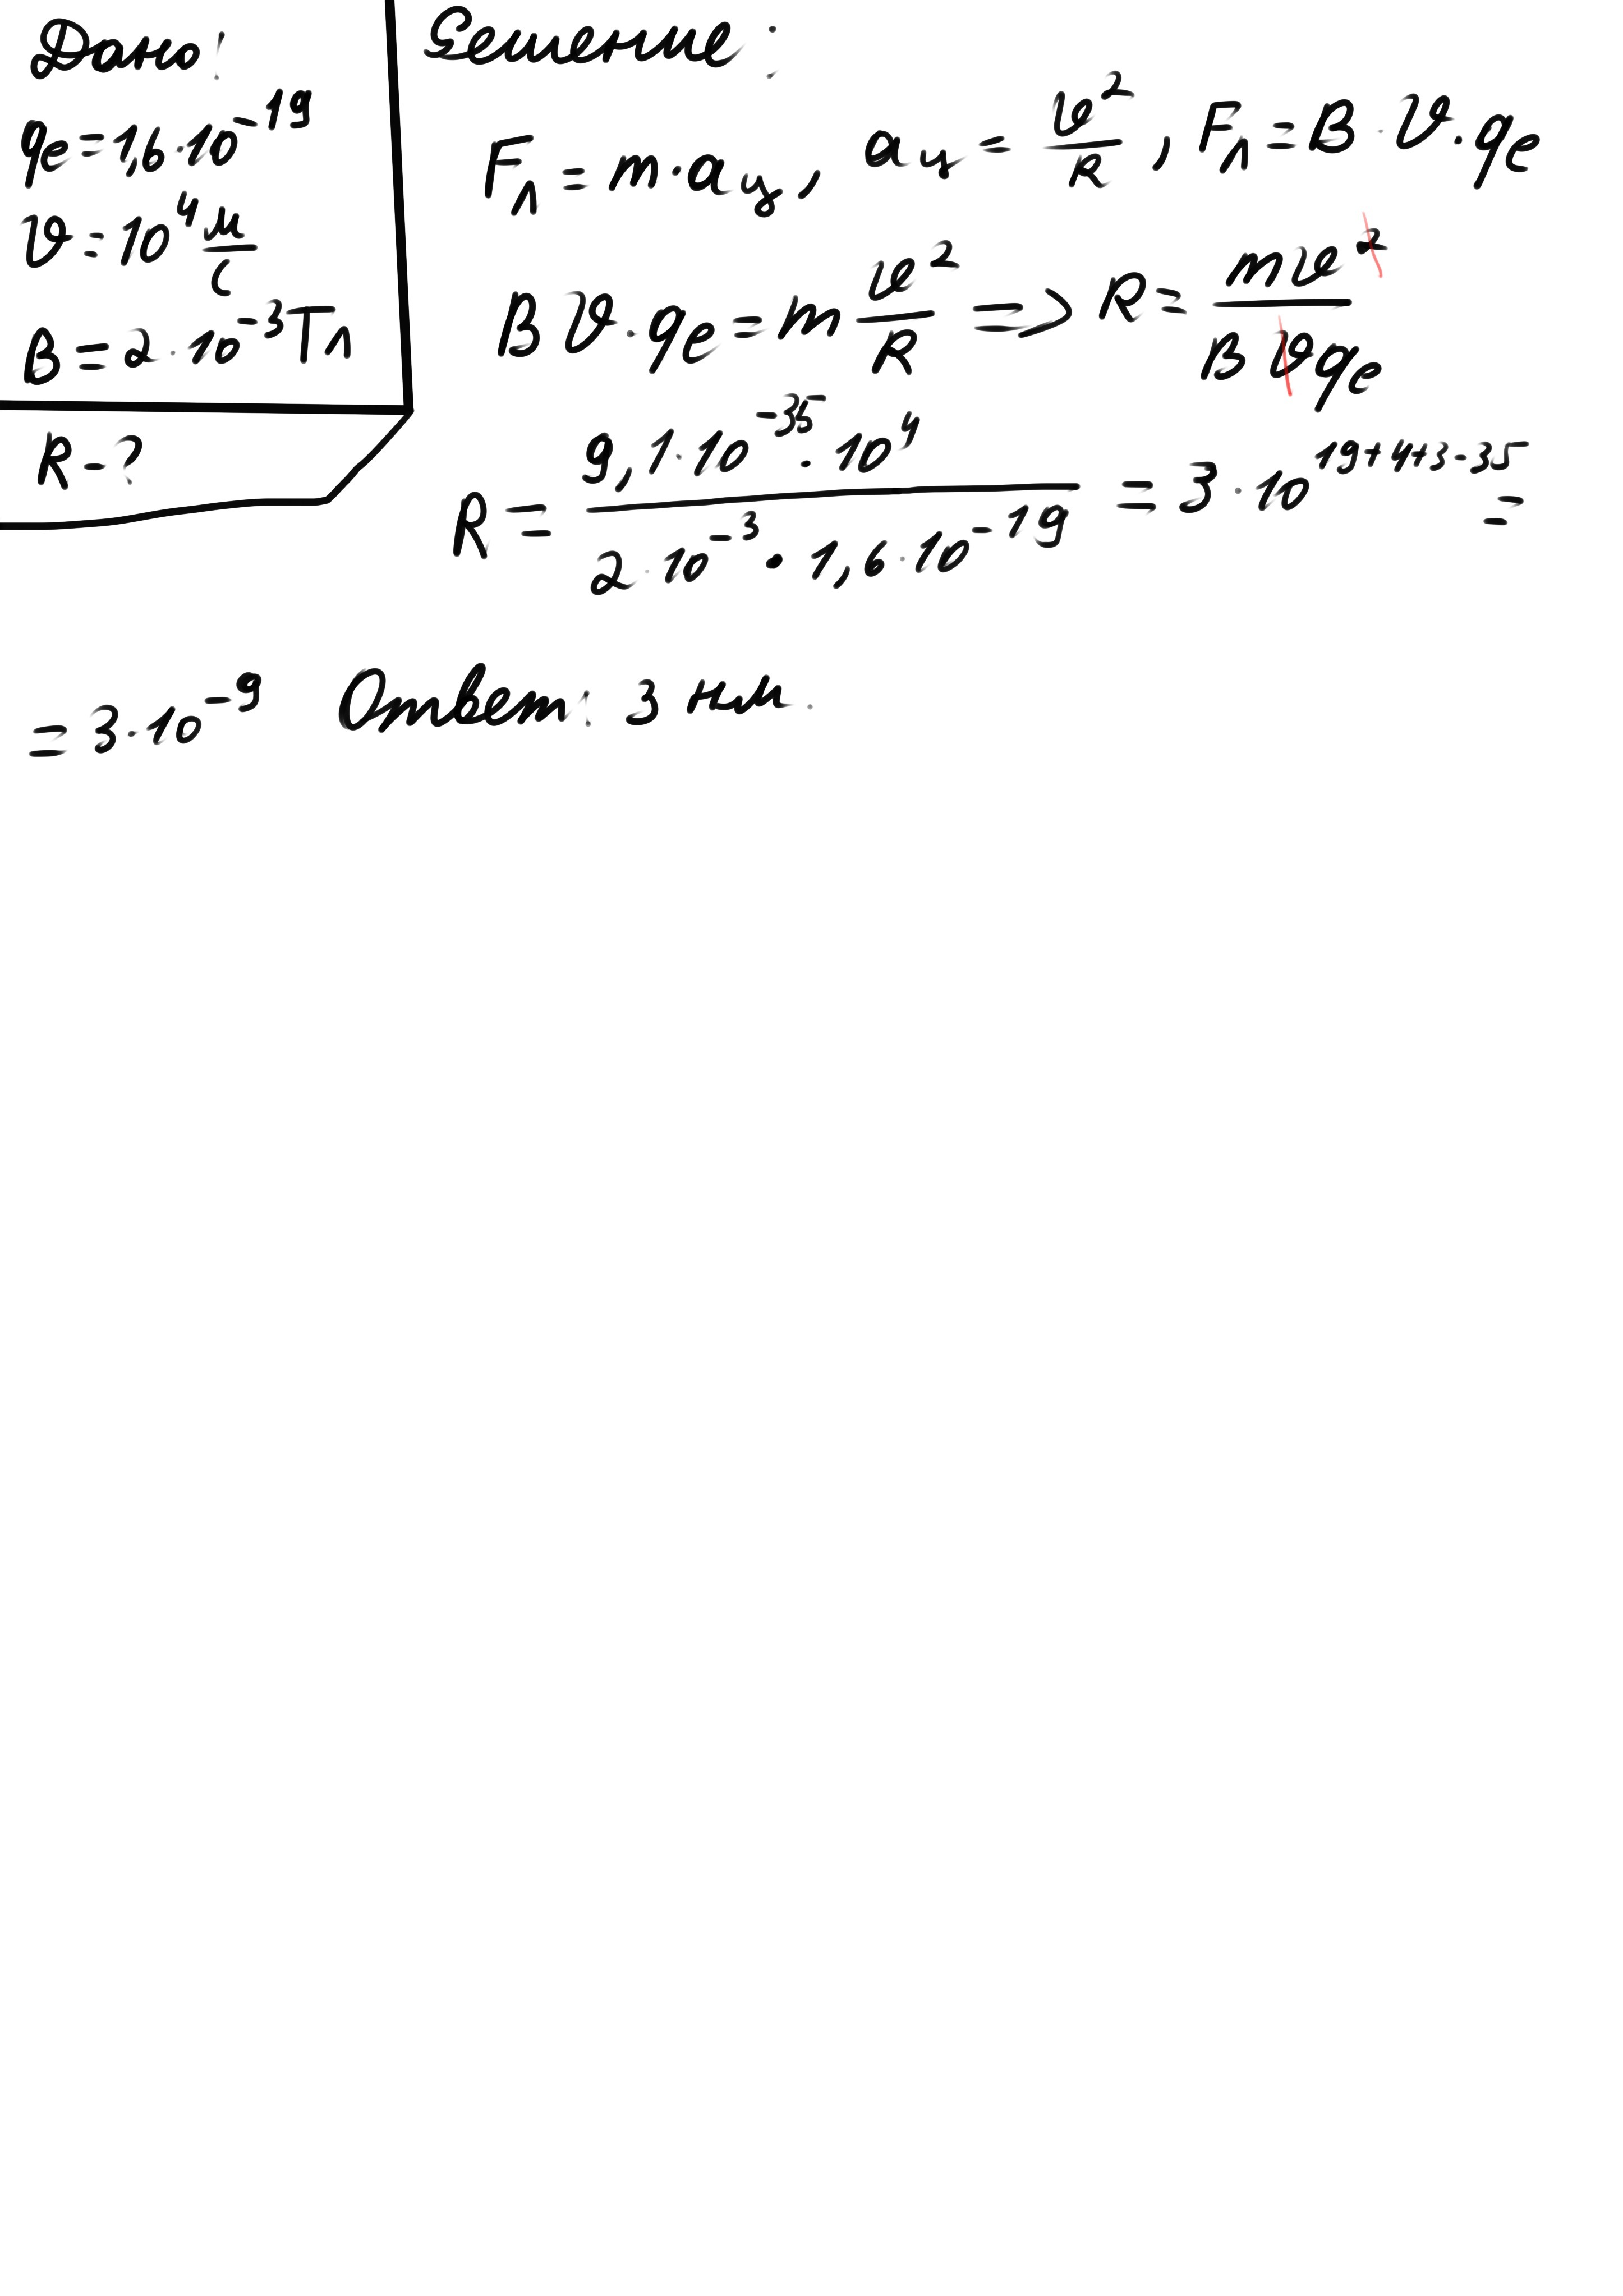 Дано:
qe = 1,6·10^-19
υ = 10^4 м/с
B = 2·10^-3 Тл
R - ?
Решение:
Fл = m·aу, aц = υ²/R, Fл = B·υ·qe
Bυ·qe = m υ²/R => R = mυ²/Bυqe
R = 9,1·10^-35·10^4/2·10^-3·1,6·10^-19 = 3·10^19+4+3-35 =
= 3·10^-9 Ответ: 3 нм.